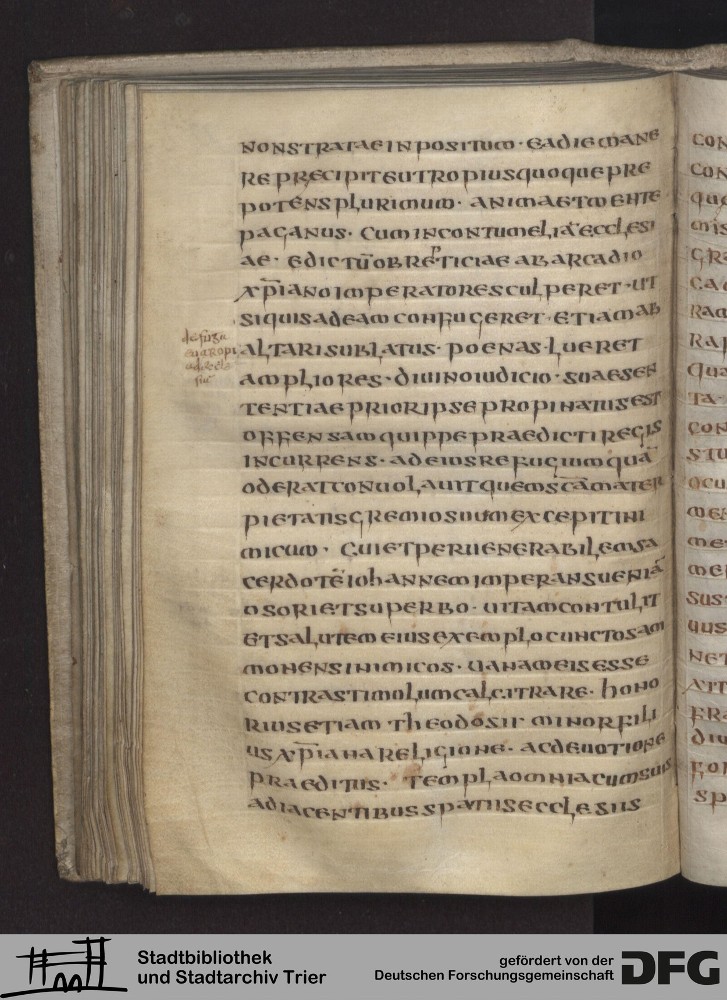 NONSTRATAE INPOSITUM · EADIE MANE
RE PRECIPIT EUTROPIUS QUOQUE PRE
POTENS PLURIMUM · ANIMAE TM EHTE
PAGANUS · CUM INCONTUMELIĀ ECCLESI
AE · EDICTŪ OBREPTICIAE AB ARCADIO
XP̄IANO IMPERATORE SCULPERET · UT
SIQUIS AD EAM CONFUGERET · ETIAM AB
ALTARI SUBLATUS · POENAS · LUERET
AMPLIORES · DIUINO IUDICIO · SUAE SEN
TENTIAE PRIOR IPSE PROPINATUS EST
OFFENSAM QUIPPE PRAEDICTI REGIS
INCURRENS · AD EIUS REFUGIUM QUĀ
ODERAT CONUOLAUIT QUEM S̄C̄Ā MATER
PIETATIS GREMIO SUUM EXCEPIT INI
MICUM · CUI ET PER UENERABILEM SA
CERDOTĒ IOHANNEM IMPERANS UENIĀ
OSORI ET SUPERBO · UITAM CONTULIT
ET SALUTEM EIUS EXEMPLO CUNCTOS AM
MONENS INIMICOS · UANAM EIS ESSE
CONTRA STIMOLUM CALCITRARE · HONO
RIUS ETIAM THEODOSII MINOR FILI
US XP̄IANA RELIGIONE · AC DEUOTIONE
PRAEDITUS · TEMPLA OMNIA CUM SUIS
ADIACENTIBUS SPATIIS ECCLESIIS
de fuga
eutropi
ad
Stadtbibliothek
und Stadtarchiv Trier
gefördert von der
Deutschen Forschungsgemeinschaft
DFG